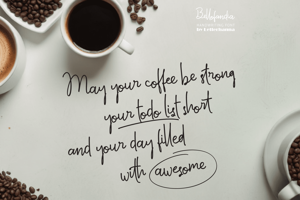 Bellefonita
May your coffee be strong
your todo list short
and your day filled
with awesome